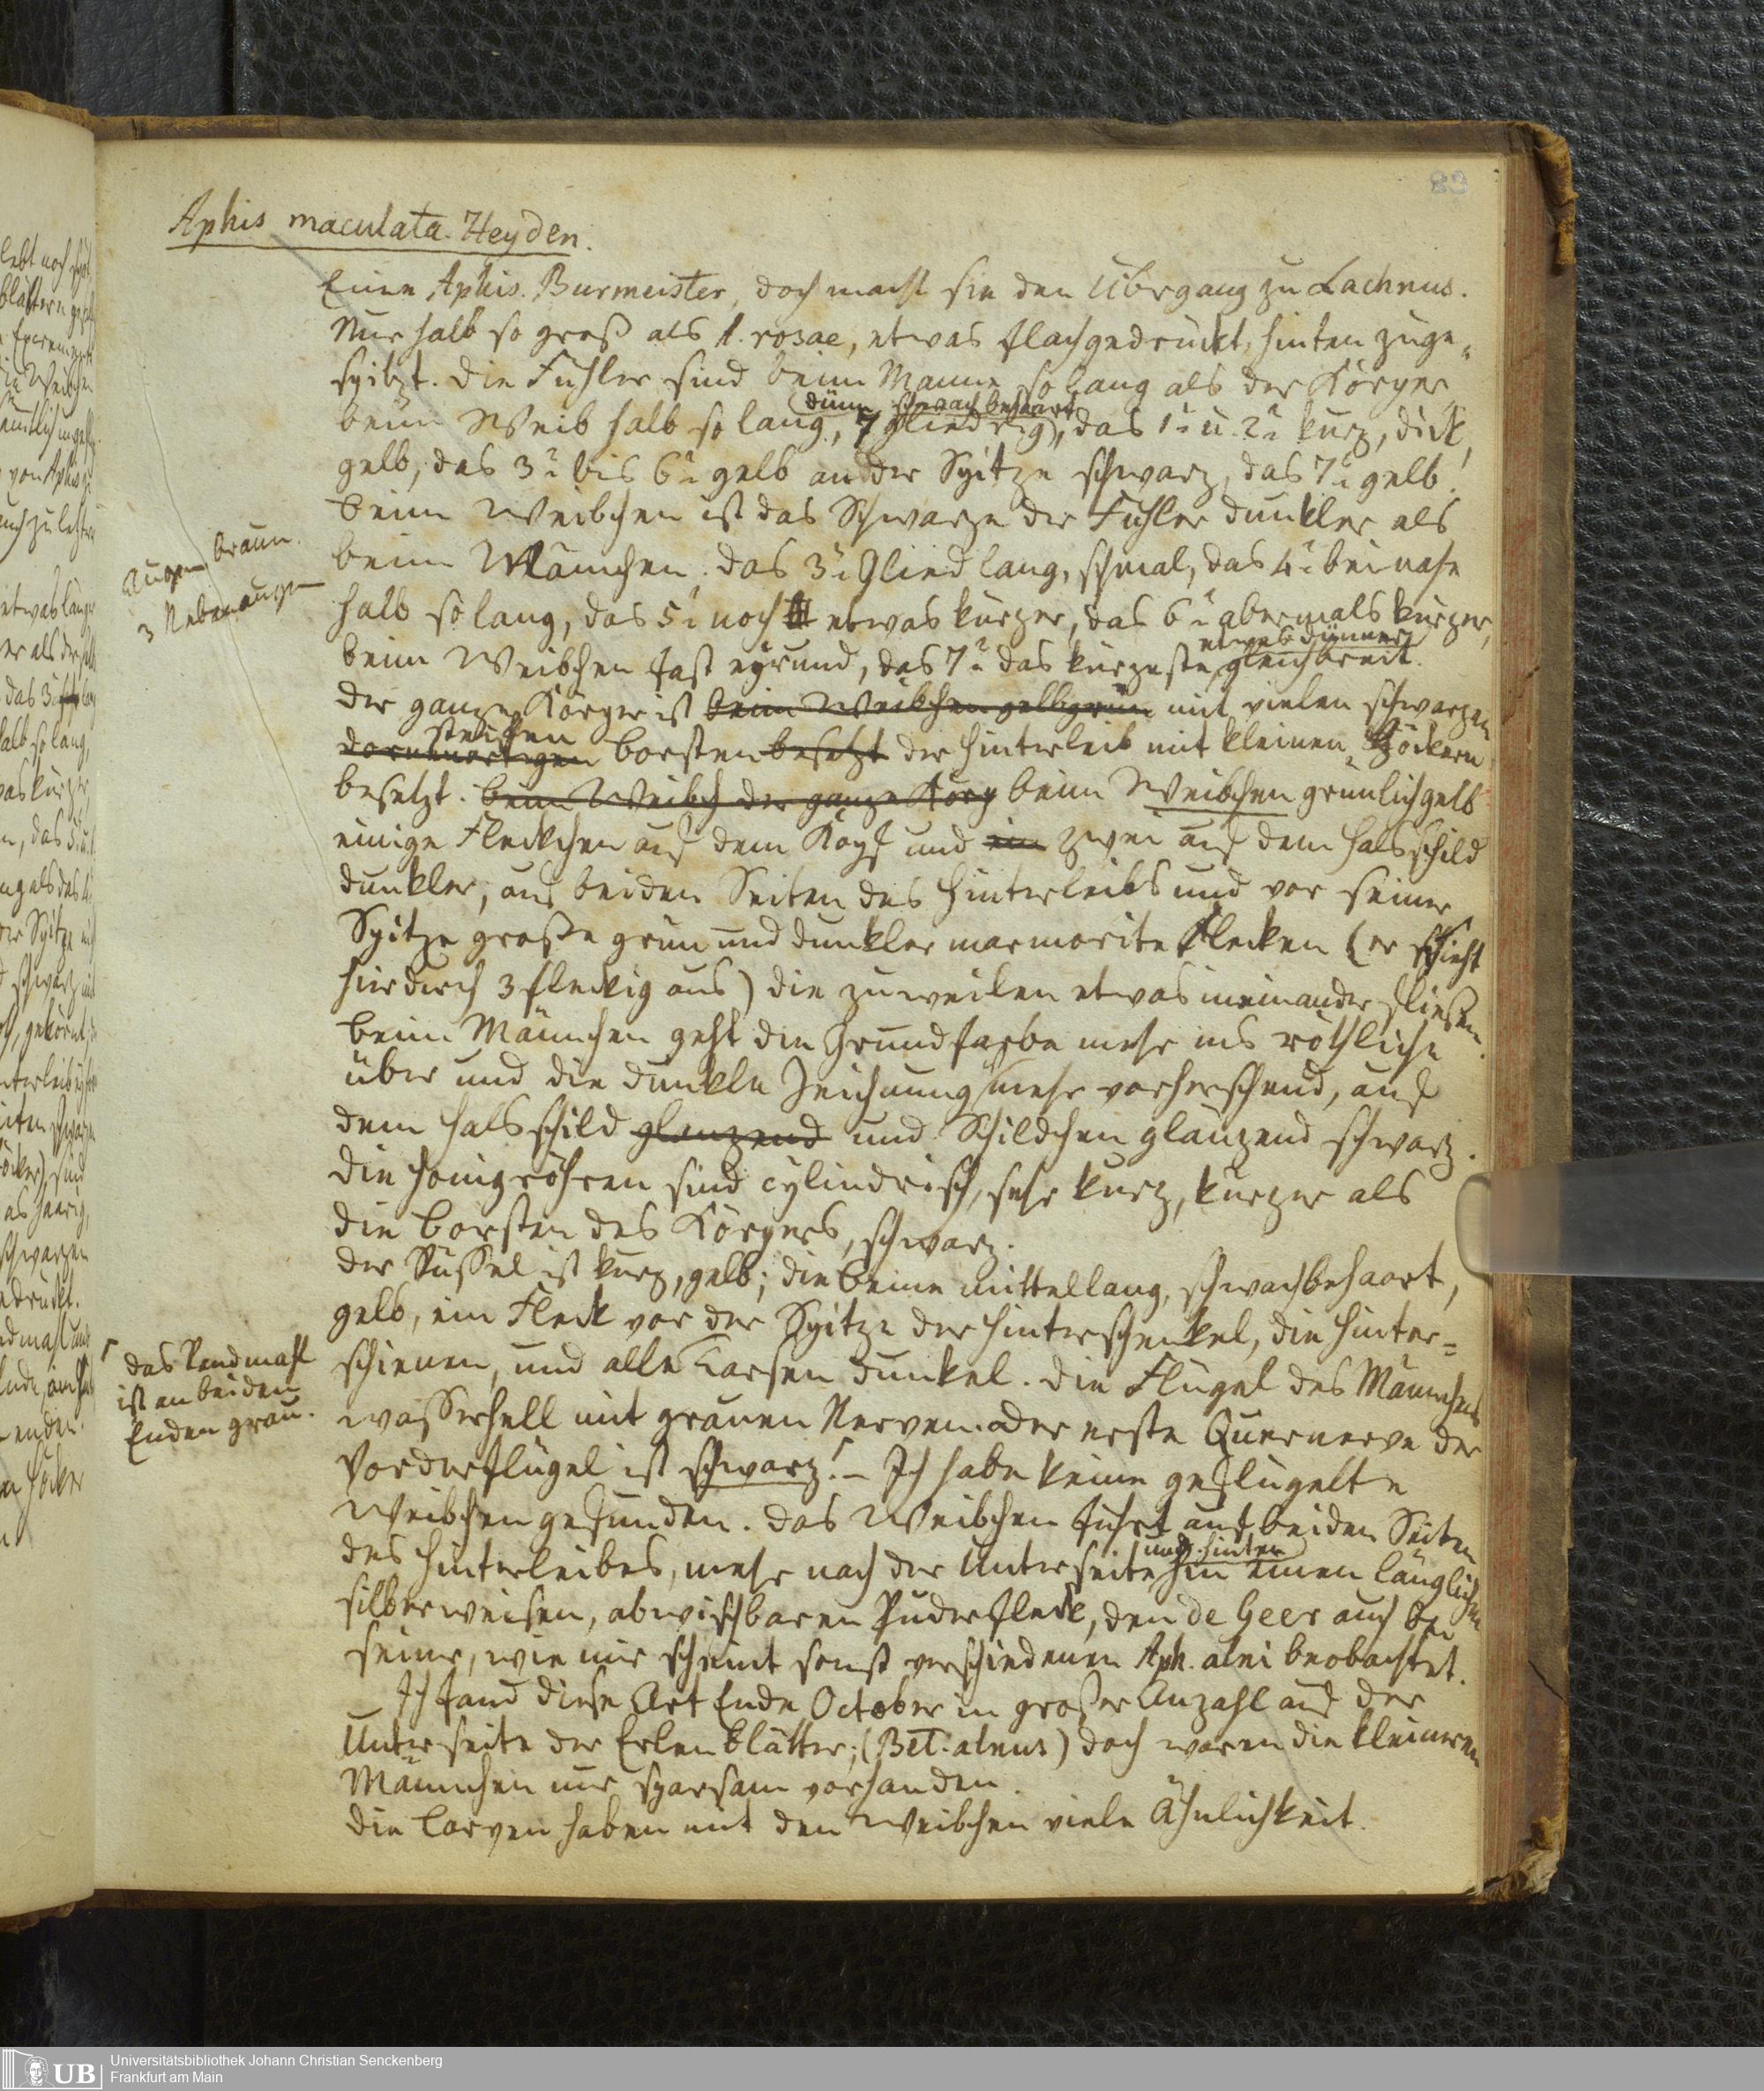 83
Aphis maculata. Heyden.
Eine Aphis. Burmeister, doch macht sie den Übergang zu Lachnus.
Nur halb so groß als A. rosae, etwas flachgedrückt, hinten zuge„
spitzt. Die Fühler sind beim Manne so lang als der Körper,
dünn, schwach behaart
beim Weib halb so lang, 7 gliedrig, das 1. u. 2. kurz, dick,
gelb, das 3. bis 6. gelb an der Spitze schwarz, das 7. gelb.
beim Weibchen ist das Schwarze der Fühler dunkler als
Augen braun.
3 Nebenaugen
beim Mänchen. das 3. Glied lang, schmal, das 4. beinahe
halb so lang, das 5. noch etwas kürzer, das 6. abermals kürzer,
etwas dünner
beim Weibchen fast eyrund, das 7. das kürzeste, gleichbreit.
Der ganze Körper ist beim Weibchen gelbgrün mit vielen schwarzen
steifen
dornenartigen borsten besetzt der Hinterleib mit kleinen Höckern
besetzt. beim Weibch der ganze Körp beim Weibchen grünlichgelb
einige Fleckchen auf dem Kopf und ein zwei auf dem Halsschild
dunkler, auf beiden Seiten des Hinterleibs und vor seiner
Spitze große grün und dunkler marmorirte Flecken (er sieht
hierdurch 3 fleckig aus) die zuweilen etwas ineinander fließen.
beim Männchen geht die Grundfarbe mehr ins röthliche
über und die dunkle Zeichnung mehr vorherschend, auf
dem Halsschild glanzend und Schildchen glänzend schwarz.
Die Honigröhren sind cylindrisch, sehr kurz, kürzer als
die borsten des Körpers, schwarz.
Der Rüssel ist kurz, gelb; die beine mittellang, schwachbehaart,
gelb, ein Fleck vor der Spitze der Hinterschenkel, die Hinter=
das Randmahl
ist an beiden
Enden grau.
schienen, und alle Tarsen dunkel. Die Flügel des Männchens
wasserhell mit grauen Nerven. der erste Quernerve der
Vorderflügel ist schwarz. – Ich habe keine geflügelte
Weibchen gefunden. Das Weibchen führt auf beiden Seiten
und hinten
des Hinterleibes, mehr nach der Unterseite hin einen länglichen
silberweisen, abwischbaren Puderfleck, den de Geer auch bei
seiner, wie mir scheint sonst verschiedenen Aph. alni beobachtet.
Ich fand diese Art Ende October in großer Anzahl auf der
Unterseite der Erlenblätter; (Bet. alnus) doch waren die kleineren
Männchen nur sparsam vorhanden.
Die Larven haben mit den Weibchen viele Ähnlichkeit.
UB
Universitätsbibliothek Johann Christian Senckenberg
Frankfurt am Main